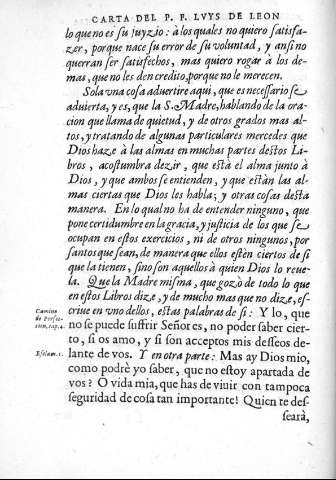 CARTA DEL P. F. LVYS DE LEON
lo que no es su juyzio: à los quales no quiero satisfa-
zer, porque nace su error de su voluntad, y ansi no
querran ser satisfechos, mas quiero rogar à los de-
mas, que no les den credito, porque no le merecen.
Sola vna cosa aduertire aqui, que es necessario se
aduierta, y es, que la S. Madre, hablando de la ora-
cion que llama de quietud, y de otros grados mas al-
tos, y tratando de algunas particulares mercedes que
Dios haze à las almas en muchas partes destos Li-
bros, acostumbra dezir, que està el alma junto à
Dios, y que ambos se entienden, y que estàn las al-
mas ciertas que Dios les habla; y otras cosas desta
manera. En lo qual no ha de entender ninguno, que
pone certidumbre en la gracia, y justicia de los que se
ocupan en estos exercicios, ni de otros ningunos, por
santos que sean, de manera que ellos estèn ciertos de si
que la tienen, sino son aquellos à quien Dios lo reue-
la. Que la Madre misma, que gozò de todo lo que
en estos Libros dize, y de mucho mas que no dize, es-
criue en vno dellos, estas palabras de si: Y lo, que
Camino
de Perfec-
cion, cap. 4.
no se puede sufrir Señor es, no poder saber cier-
to, si os amo, y si son acceptos mis desseos de-
Esclam. 1.
lante de vos. Y en otra parte: Mas ay Dios mio,
como podrè yo saber, que no estoy apartada de
vos? O vida mia, que has de viuir con tampoca
seguridad de cosa tan importante! Quien te des-
seará,